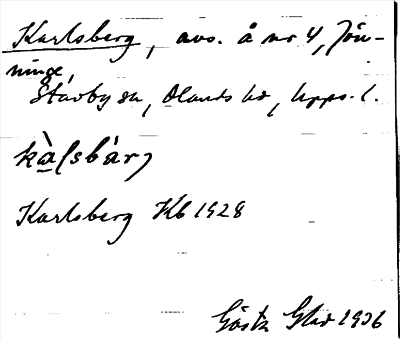 Karlsberg, avs. å nr 4, Jön-
ninge,
Stavby sn, Olands hd, Upps. l.
kàlsbár)
Karlsberg Kb 1928
Gösta 1936